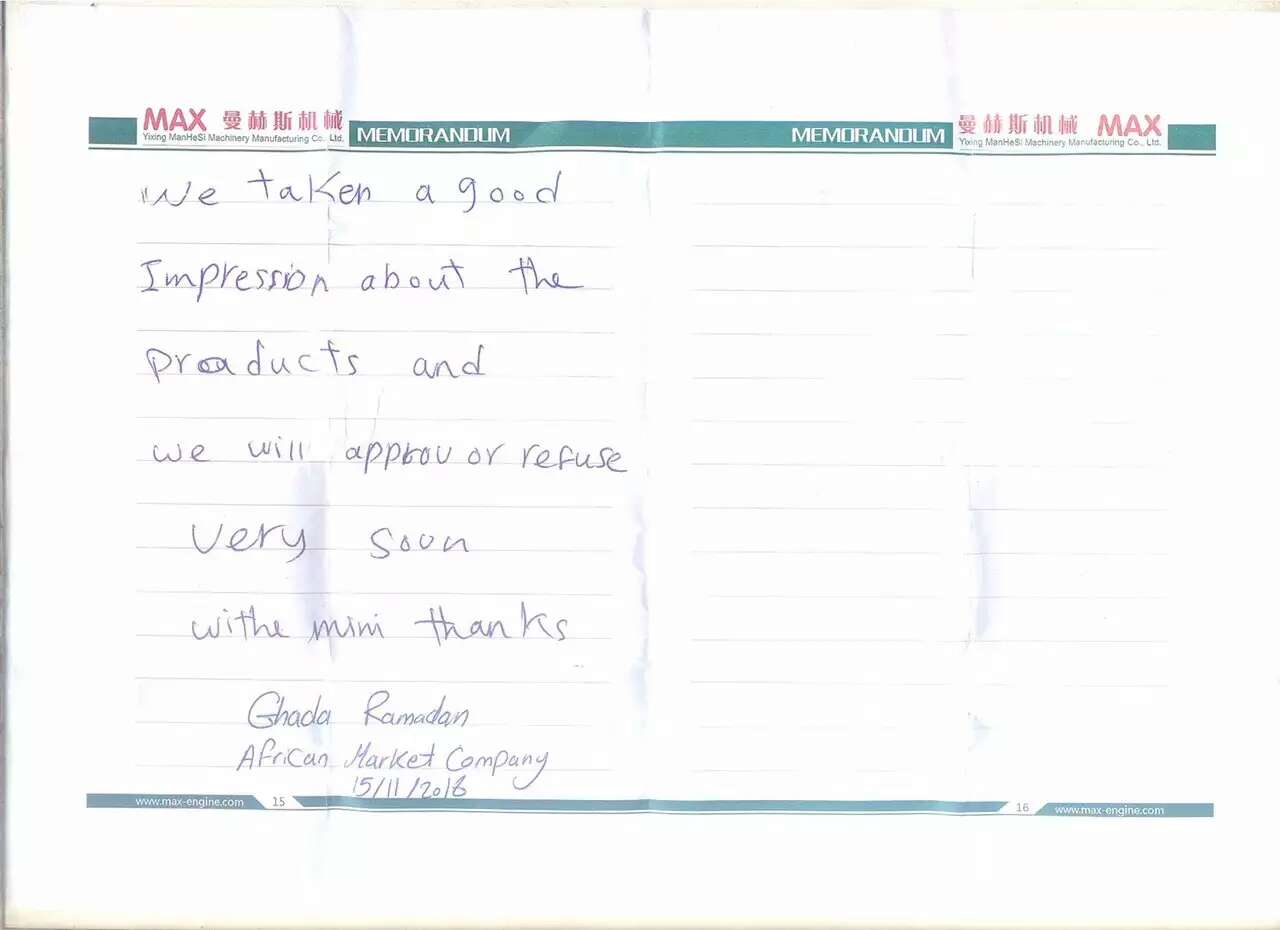 MAX 曼赫斯机械
Yixing ManHeSi Machinery Manufacturing Co., Ltd.
MEMORANDUM
We taken a good
Impression about the
products and
we will approu or refuse
very soon
withe mini thanks
Ghada Ramadan
African Market Company
15/11/2018
www.max-engine.com 15
MEMORANDUM
曼赫斯机械 MAX
Yixing ManHeSi Machinery Manufacturing Co., Ltd.
16 www.max-engine.com